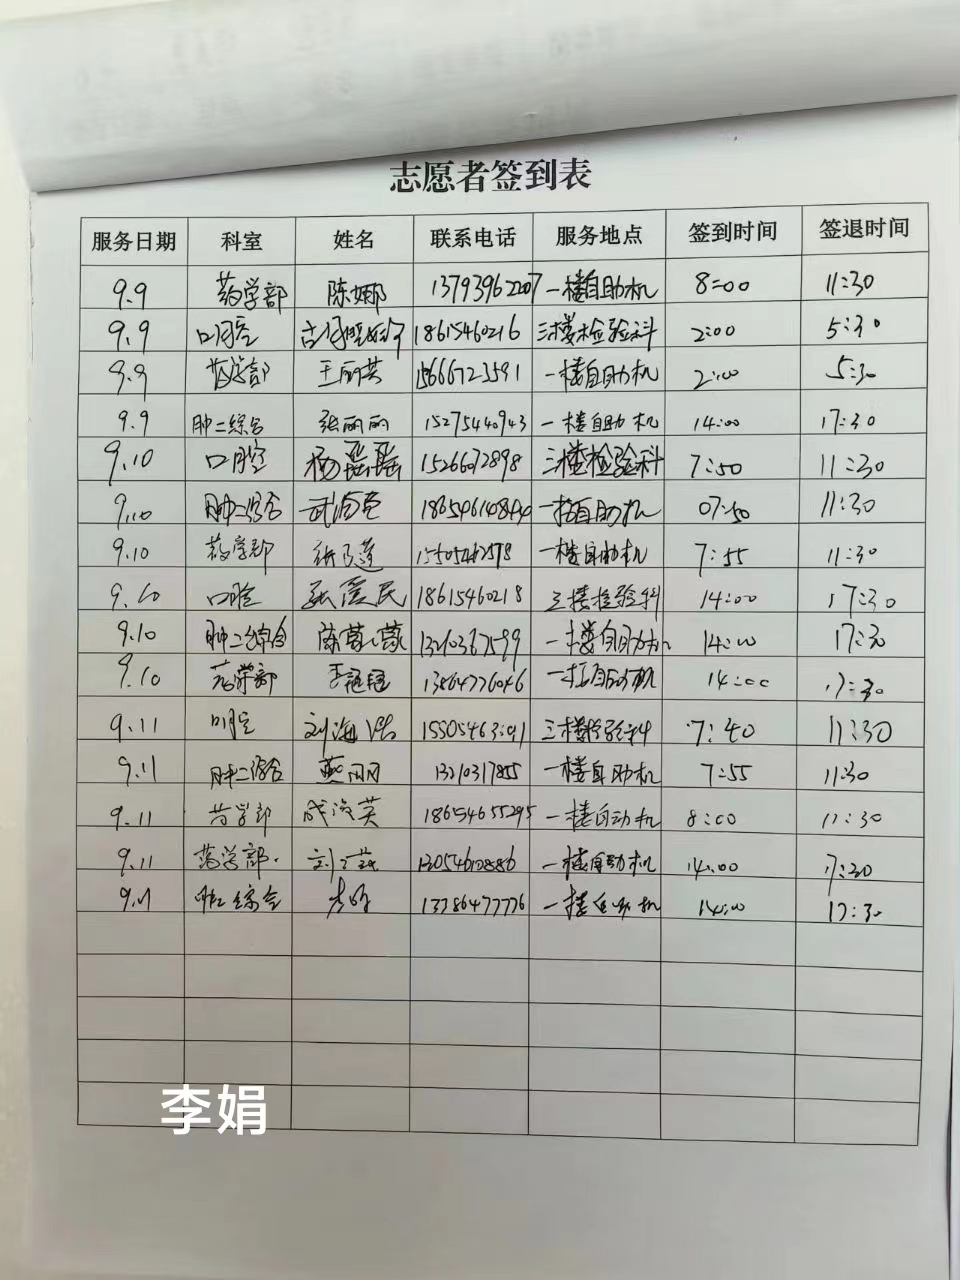 志愿者签到表
服务日期 科室 姓名 联系电话 服务地点 签到时间 签退时间
9.9 药学部 陈娜 13793962207 一楼自助机 8:00 11:30
9.9 口腔 18615460216 三楼检验科 2:00 5:30
9.9 药学部 王丽英 15666723591 一楼自助机 2:00 5:30
9.9 肿二综合 张丽丽 15275440943 一楼自助机 14:00 17:30
9.10 口腔 杨磊磊 15266072898 三楼检验科 7:50 11:30
9.10 肿二综合 一楼自助机 07:50 11:30
9.10 药学部 一楼自助机 7:55 11:30
9.10 口腔 张爱民 18615460218 三楼检验科 14:00 17:30
9.10 肿二综合 陈蒙蒙 一楼自助机 14:00 17:30
9.10 药学部 13864776046 一楼自助机 14:00 17:30
9.11 口腔 刘海洪 三楼检验科 7:40 11:30
9.11 肿二综合 燕丽 13210317855 一楼自助机 7:55 11:30
9.11 药学部 18654655295 一楼自动机 8:00 11:30
9.11 药学部 一楼自助机 14:00
9.11 肿二综合 一楼自助机 14:00 17:30
李娟